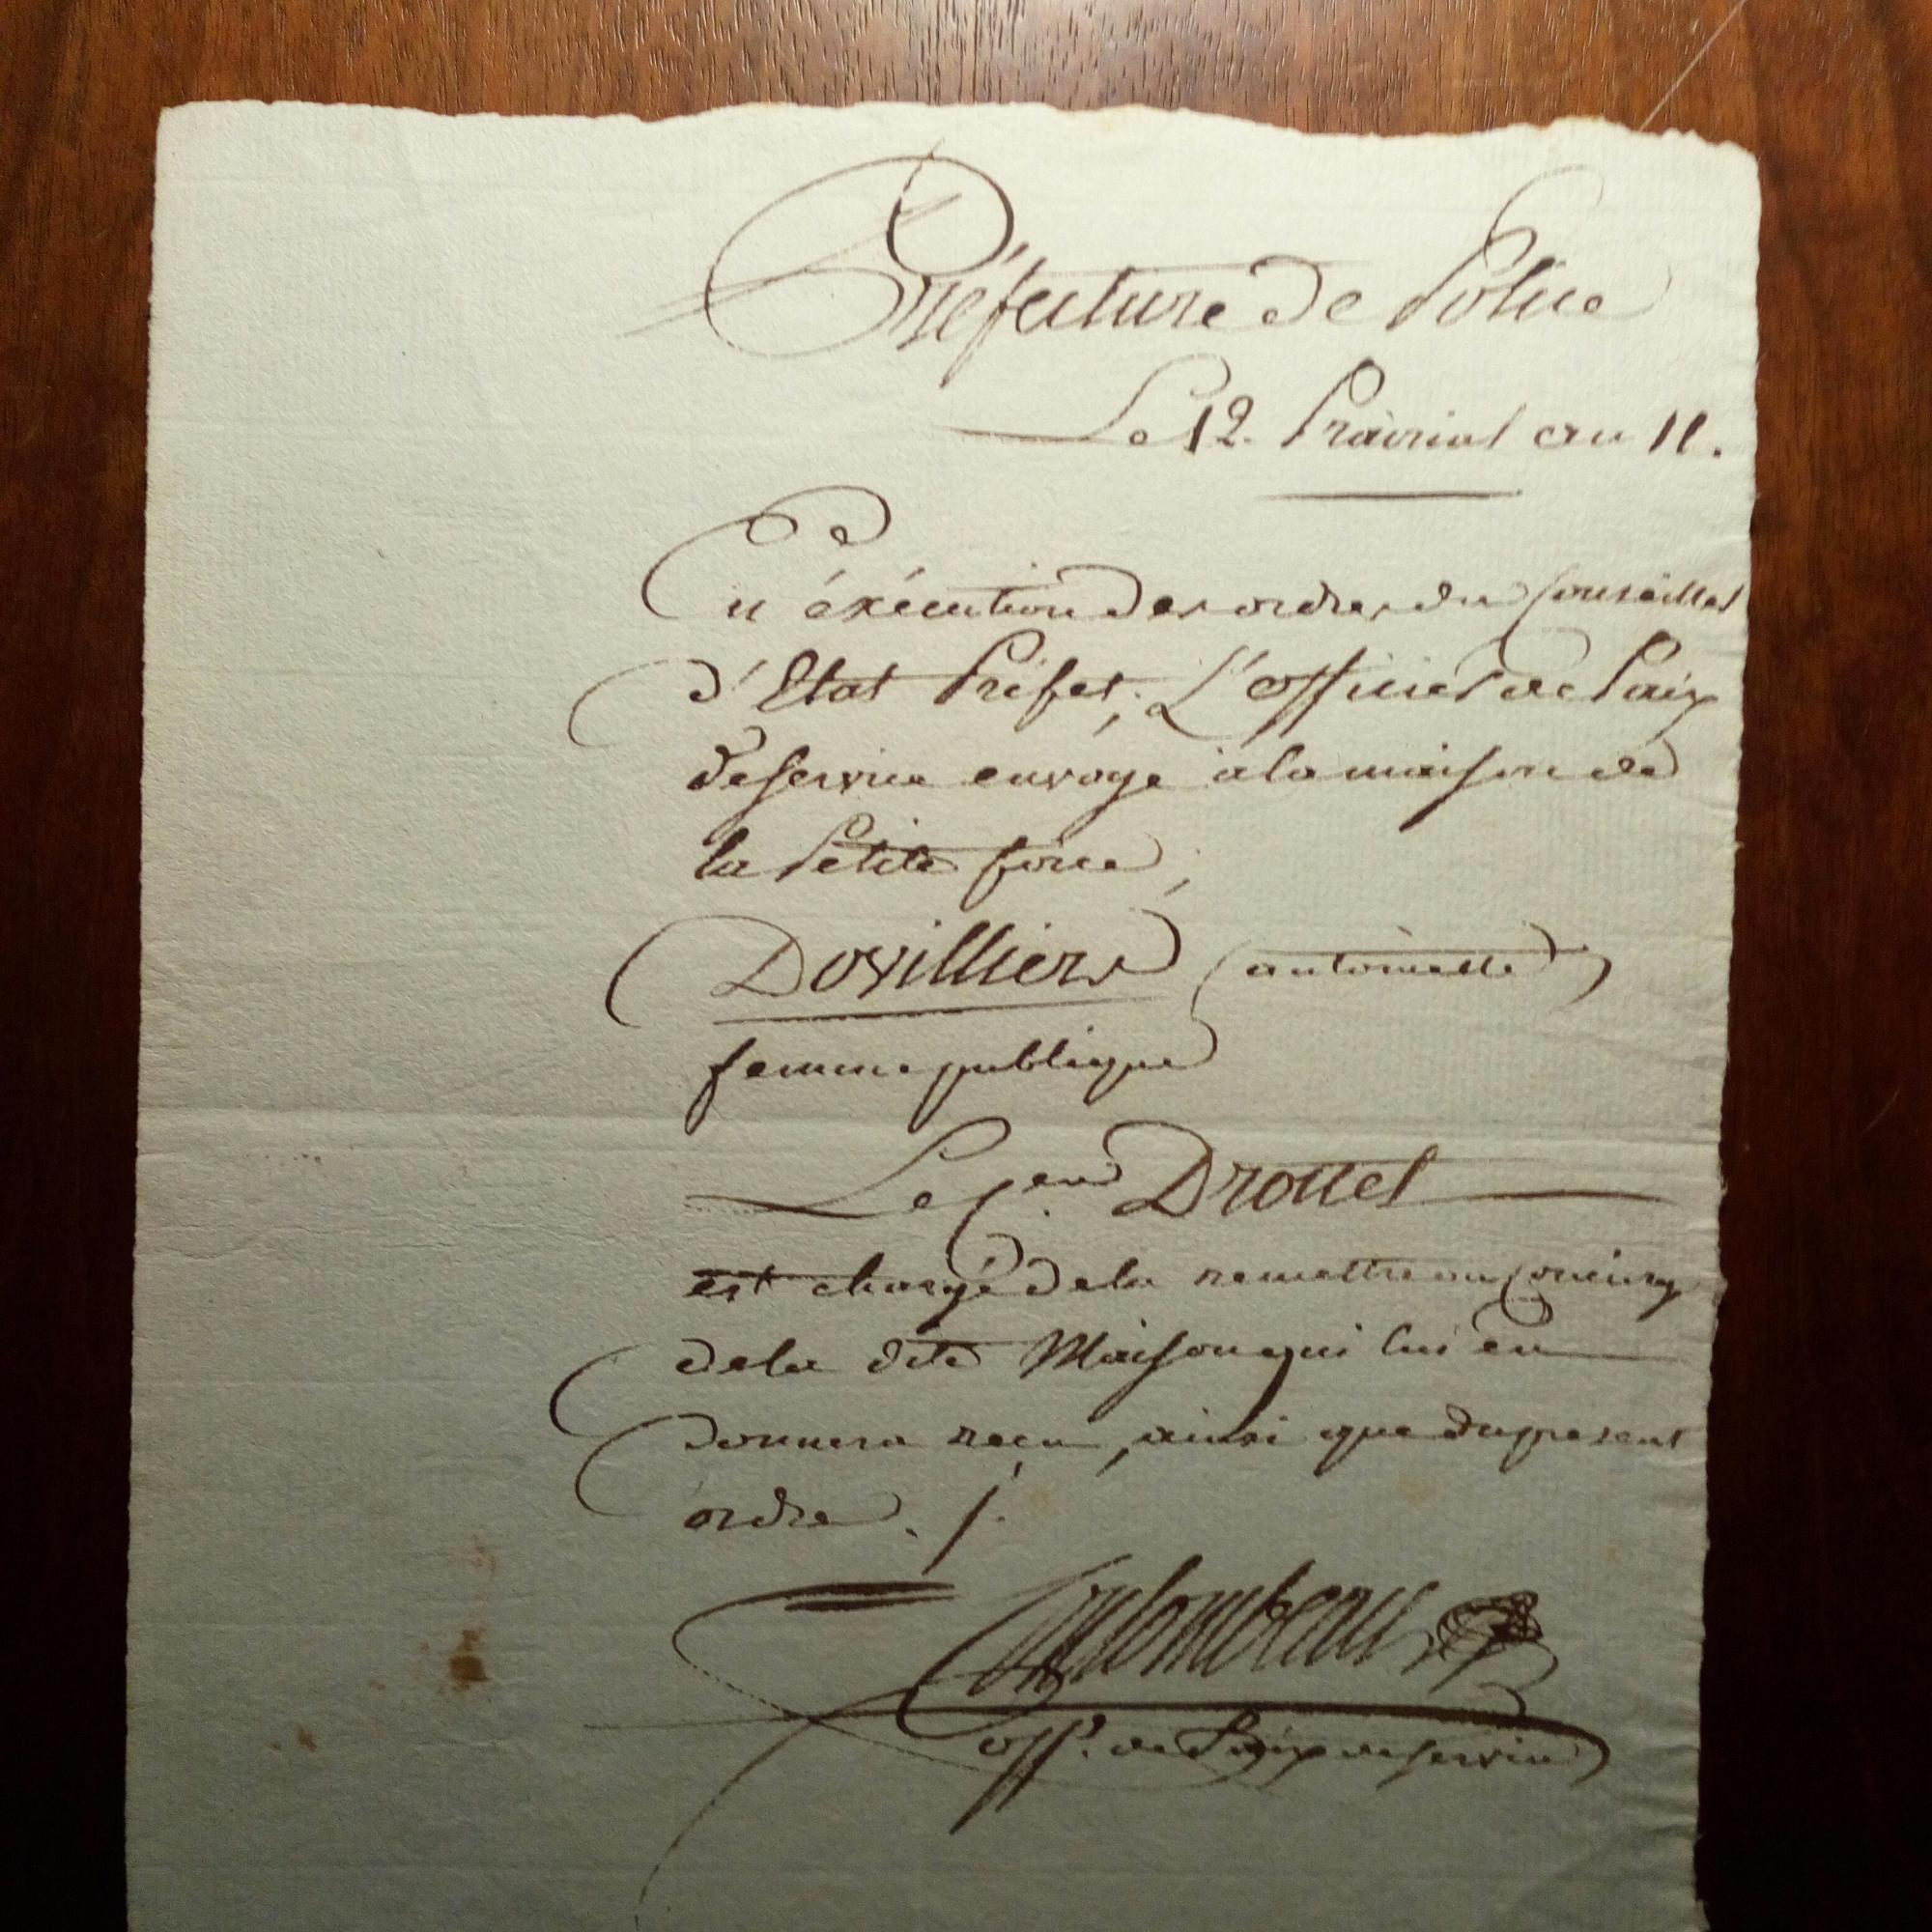 Préfecture de Police
Le 12. Prairial an 11.
En éxécution des ordres du Conseiller
d'Etat Préfet, L'officier de Paix
de service envoye à la maison de
la Petite force,
Dovilliers (antoinette)
femme publique
Le C.en Drouet
est chargé de la remettre au Concierge
de la dite Maison qui lui en
donnera reçu, ainsi que du present
ordre. /.
Coulombeau
off.r de Paix de service